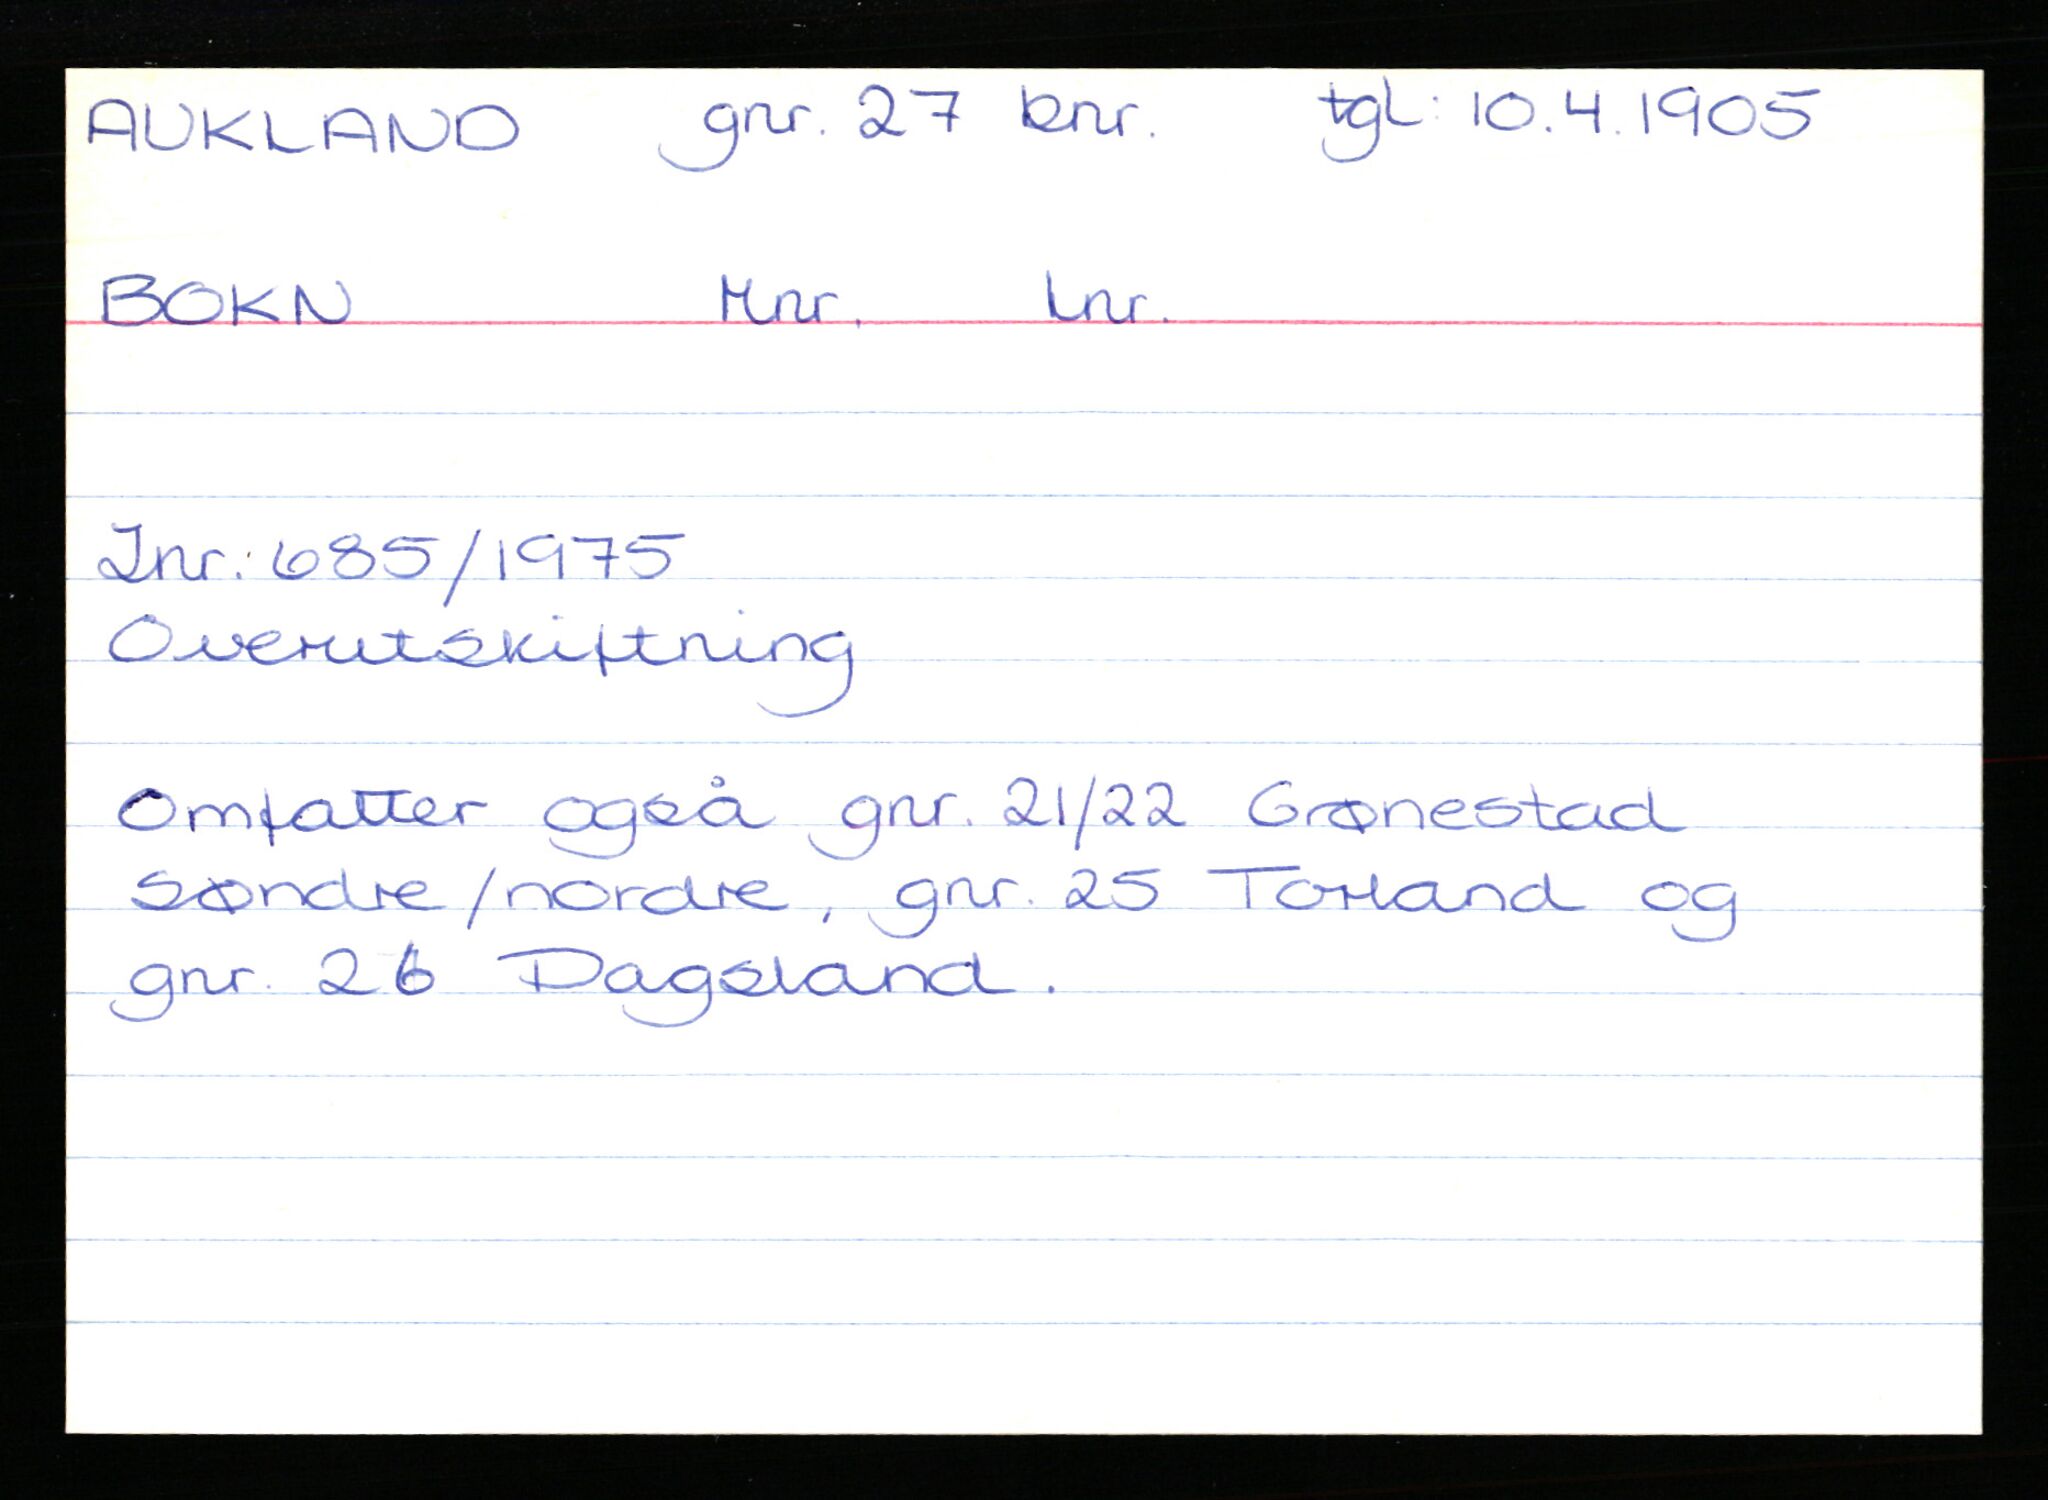 AUKLAND gnr. 27 bnr. tgl: 10.4.1905
BOKN Mnr. Lnr.
Jnr.: 685/1975
Overutskiftning
Omfatter også gnr. 21/22 Grønestad
søndre/nordre, gnr. 25 Torland og
gnr. 26 Dagsland.